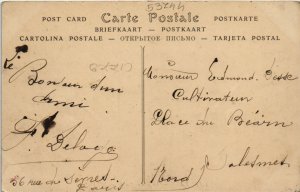 53244
POST CARD Carte Postale POSTKARTE
BRIEFKAART - POSTKARTE
CARTOLINA POSTALE - ОТКРЫТОЕ ПИСЬМО - TARJETA POSTAL
Bonjour d'un
ami
Delage
26 rue de
Paris
Monsieur Edmond
Cultivateur
Place du Béarn
Solesmes
Nord